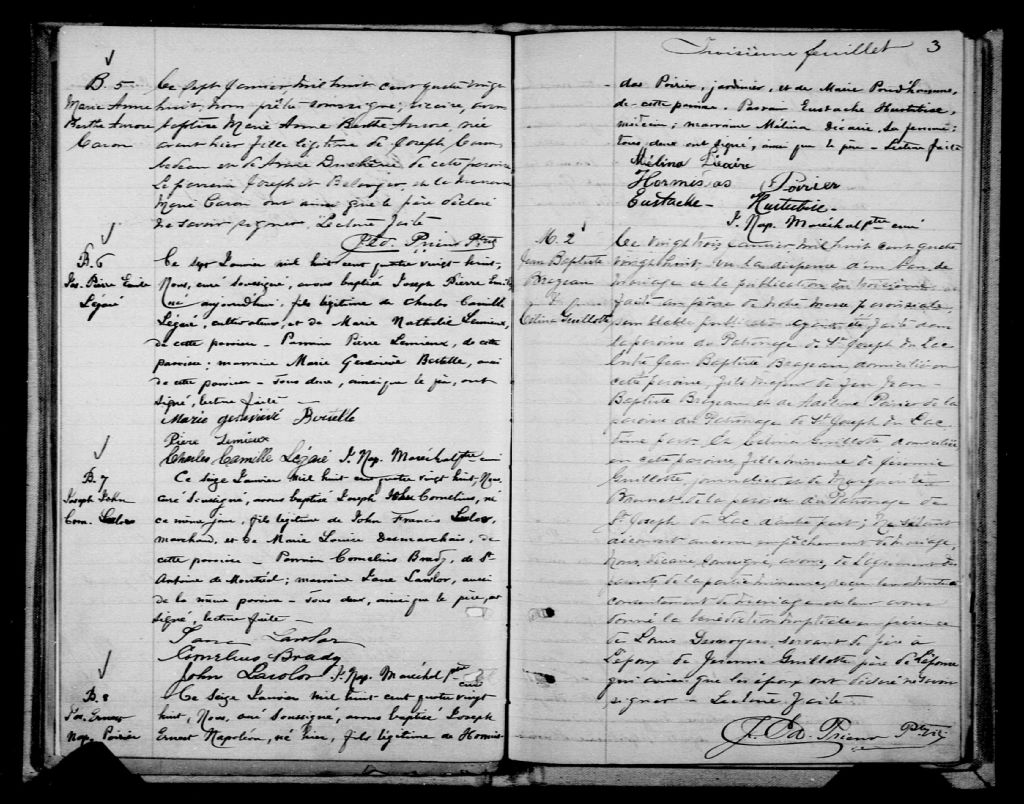 B. 5
Marie Anne
Berthe Aurore
Caron
Ce sept Janvier, mil huit cent quatre vingt
huit, nous prêtre soussigné, vicaire, avons
baptisé Marie Anne Berthe Aurore, née
avant hier fille légitime de Joseph Caron
et de Marie de cette paroisse
Le parrain Joseph Belanger, et la marraine
Marie Caron ont ainsi que le père déclaré
ne savoir signer. Lecture faite
J. Ed. Prieur Ptre
B. 6
Jos. Pierre Emile
Légaré
Ce sept Janvier mil huit cent quatre vingt huit,
Nous, curé soussigné, avons baptisé Joseph Pierre Emile,
né aujourd'hui, fils légitime de Charles Camille
Légaré, cultivateur, et de Marie Nathalie Lemieux,
de cette paroisse - Parrain Pierre Lemieux, de cette
paroisse; marraine Marie Geneviève, aussi
de cette paroisse - Tous deux, ainsi que le père, ont
signé, lecture faite -
Marie geneviève
Piere Lemieux
Charles Camille Légaré J. Nap. Maréchal ptre curé
B. 7
Joseph John
Corn. Lawlor
Ce seize Janvier mil huit cent quatre vingt huit, Nous,
curé soussigné, avons baptisé Joseph John Cornelius, né
ce même jour, fils légitime de John Francis Lawlor,
marchand, et de Marie Louise Desmarchais, de
cette paroisse - Parrain Cornelius Brady, de St
Antoine de Montréal; marraine Jane Lawlor, aussi
de la même paroisse - Tous deux, ainsi que le père, ont
signé, lecture faite -
Jane Lawlor
Cornelius Brady
John Lawlor J. Nap. Maréchal Ptre curé
B. 8
Jos. Ernest
Nap. Poirier
Ce seize Janvier mil huit cent quatre vingt
huit, Nous, curé soussigné, avons baptisé Joseph
Ernest Napoléon, né hier, fils légitime de Hormis-
Troisième feuillet 3
das Poirier, jardinier, et de Marie Prud'homme,
de cette paroisse. Parrain Eustache Hurtubise,
médecin; marraine Mélina Décarie, sa femme;
tous deux ont signé, ainsi que le père - Lecture faite
Mélina Décarie
Hormisdas Poirier
Eustache Hurtubise
J. Nap. Maréchal ptre curé
M. 2
Jean Baptiste
Brazeau
&
Célina Guillotte
Ce vingt trois Janvier mil huit cent quatre
vingt huit, vu la dispense d'un ban de
mariage et la publication
faite au prône de notre messe paroissiale,
semblable publication ayant été faite dans
la paroisse du Patronage de St Joseph du Lac
entre Jean Baptiste Brazeau, domicilié en
cette paroisse, fils majeur de feu Jean-
Baptiste Brazeau et de Poirier de la
paroisse du Patronage de St Joseph du Lac
d'une part, Et Célina Guillotte domiciliée
en cette paroisse, fille mineure de Jérémie
Guillotte, journalier et de Marguerite
Brunet de la paroisse du Patronage de
St Joseph du Lac d'autre part; ne s'étant
découvert aucun empêchement de mariage,
Nous, Vicaire soussigné, avons, de l'agrément des
parents de la partie mineure, reçu leur mutuel
consentement de mariage et leur avons
donné la bénédiction nuptiale en présence
de Louis Desrosiers, servant de père à
l'époux de Jérémie Guillotte père de l'épouse
qui ainsi que les époux ont déclaré ne savoir
signer - Lecture faite
J. Ed. Prieur Ptre Vic.